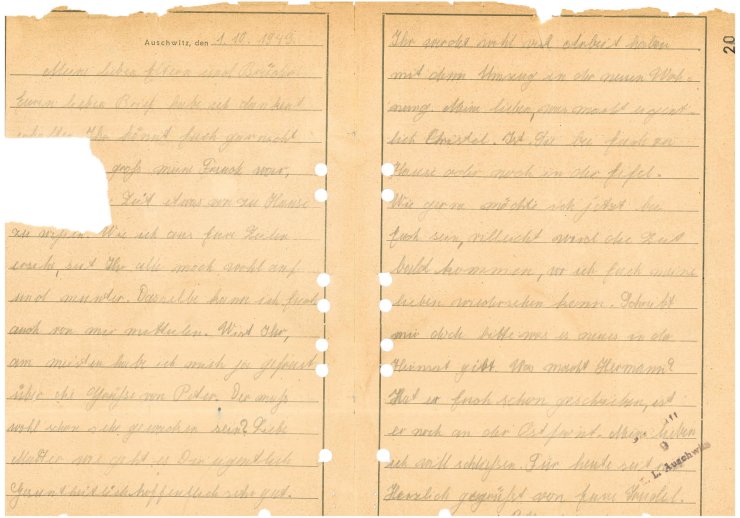 Auschwitz, den 1.10.1943.
Meine lieben Eltern und Brüder.
Euren lieben Brief habe ich dankend
erhalten. Ihr könnt Euch gar nicht
groß meine Freude war,
Zeit etwas von zu Hause
zu wissen. Wie ich aus Eure Zeilen
ersehe, seit Ihr alle noch wohl auf
und munter. Dasselbe kann ich Euch
auch von mir mitteilen. Wist Ihr,
am meisten habe ich mich ja gefreut
über die Grüße von Peter. Der muß
wohl schon sehr gewachsen sein? Liebe
Mutter wie geht es Dir eigentlich
hoffentlich sehr gut.
Ihr werdet wohl viel Arbeit haben
mit dem Umzug in der neuen Woh-
nung. Meine lieben, was macht eigent-
lich Christel. Ist Sie bei Euch zu
Hause oder noch in der Eifel.
Wie gern möchte ich jetzt bei
Euch sein, villeicht wird die Zeit
bald kommen, wo ich Euch meine
lieben wiedersehen kann. Schreibt
mir doch bitte was es neues in der
Heimat gibt. Was macht Hermann?
Hat er Euch schon geschrieben, ist
er noch an der Ostfront. Meine lieben
ich will schließen. Für heute seit
Herzlich gegrüßt von Eure
20
9
L. Auschwitz